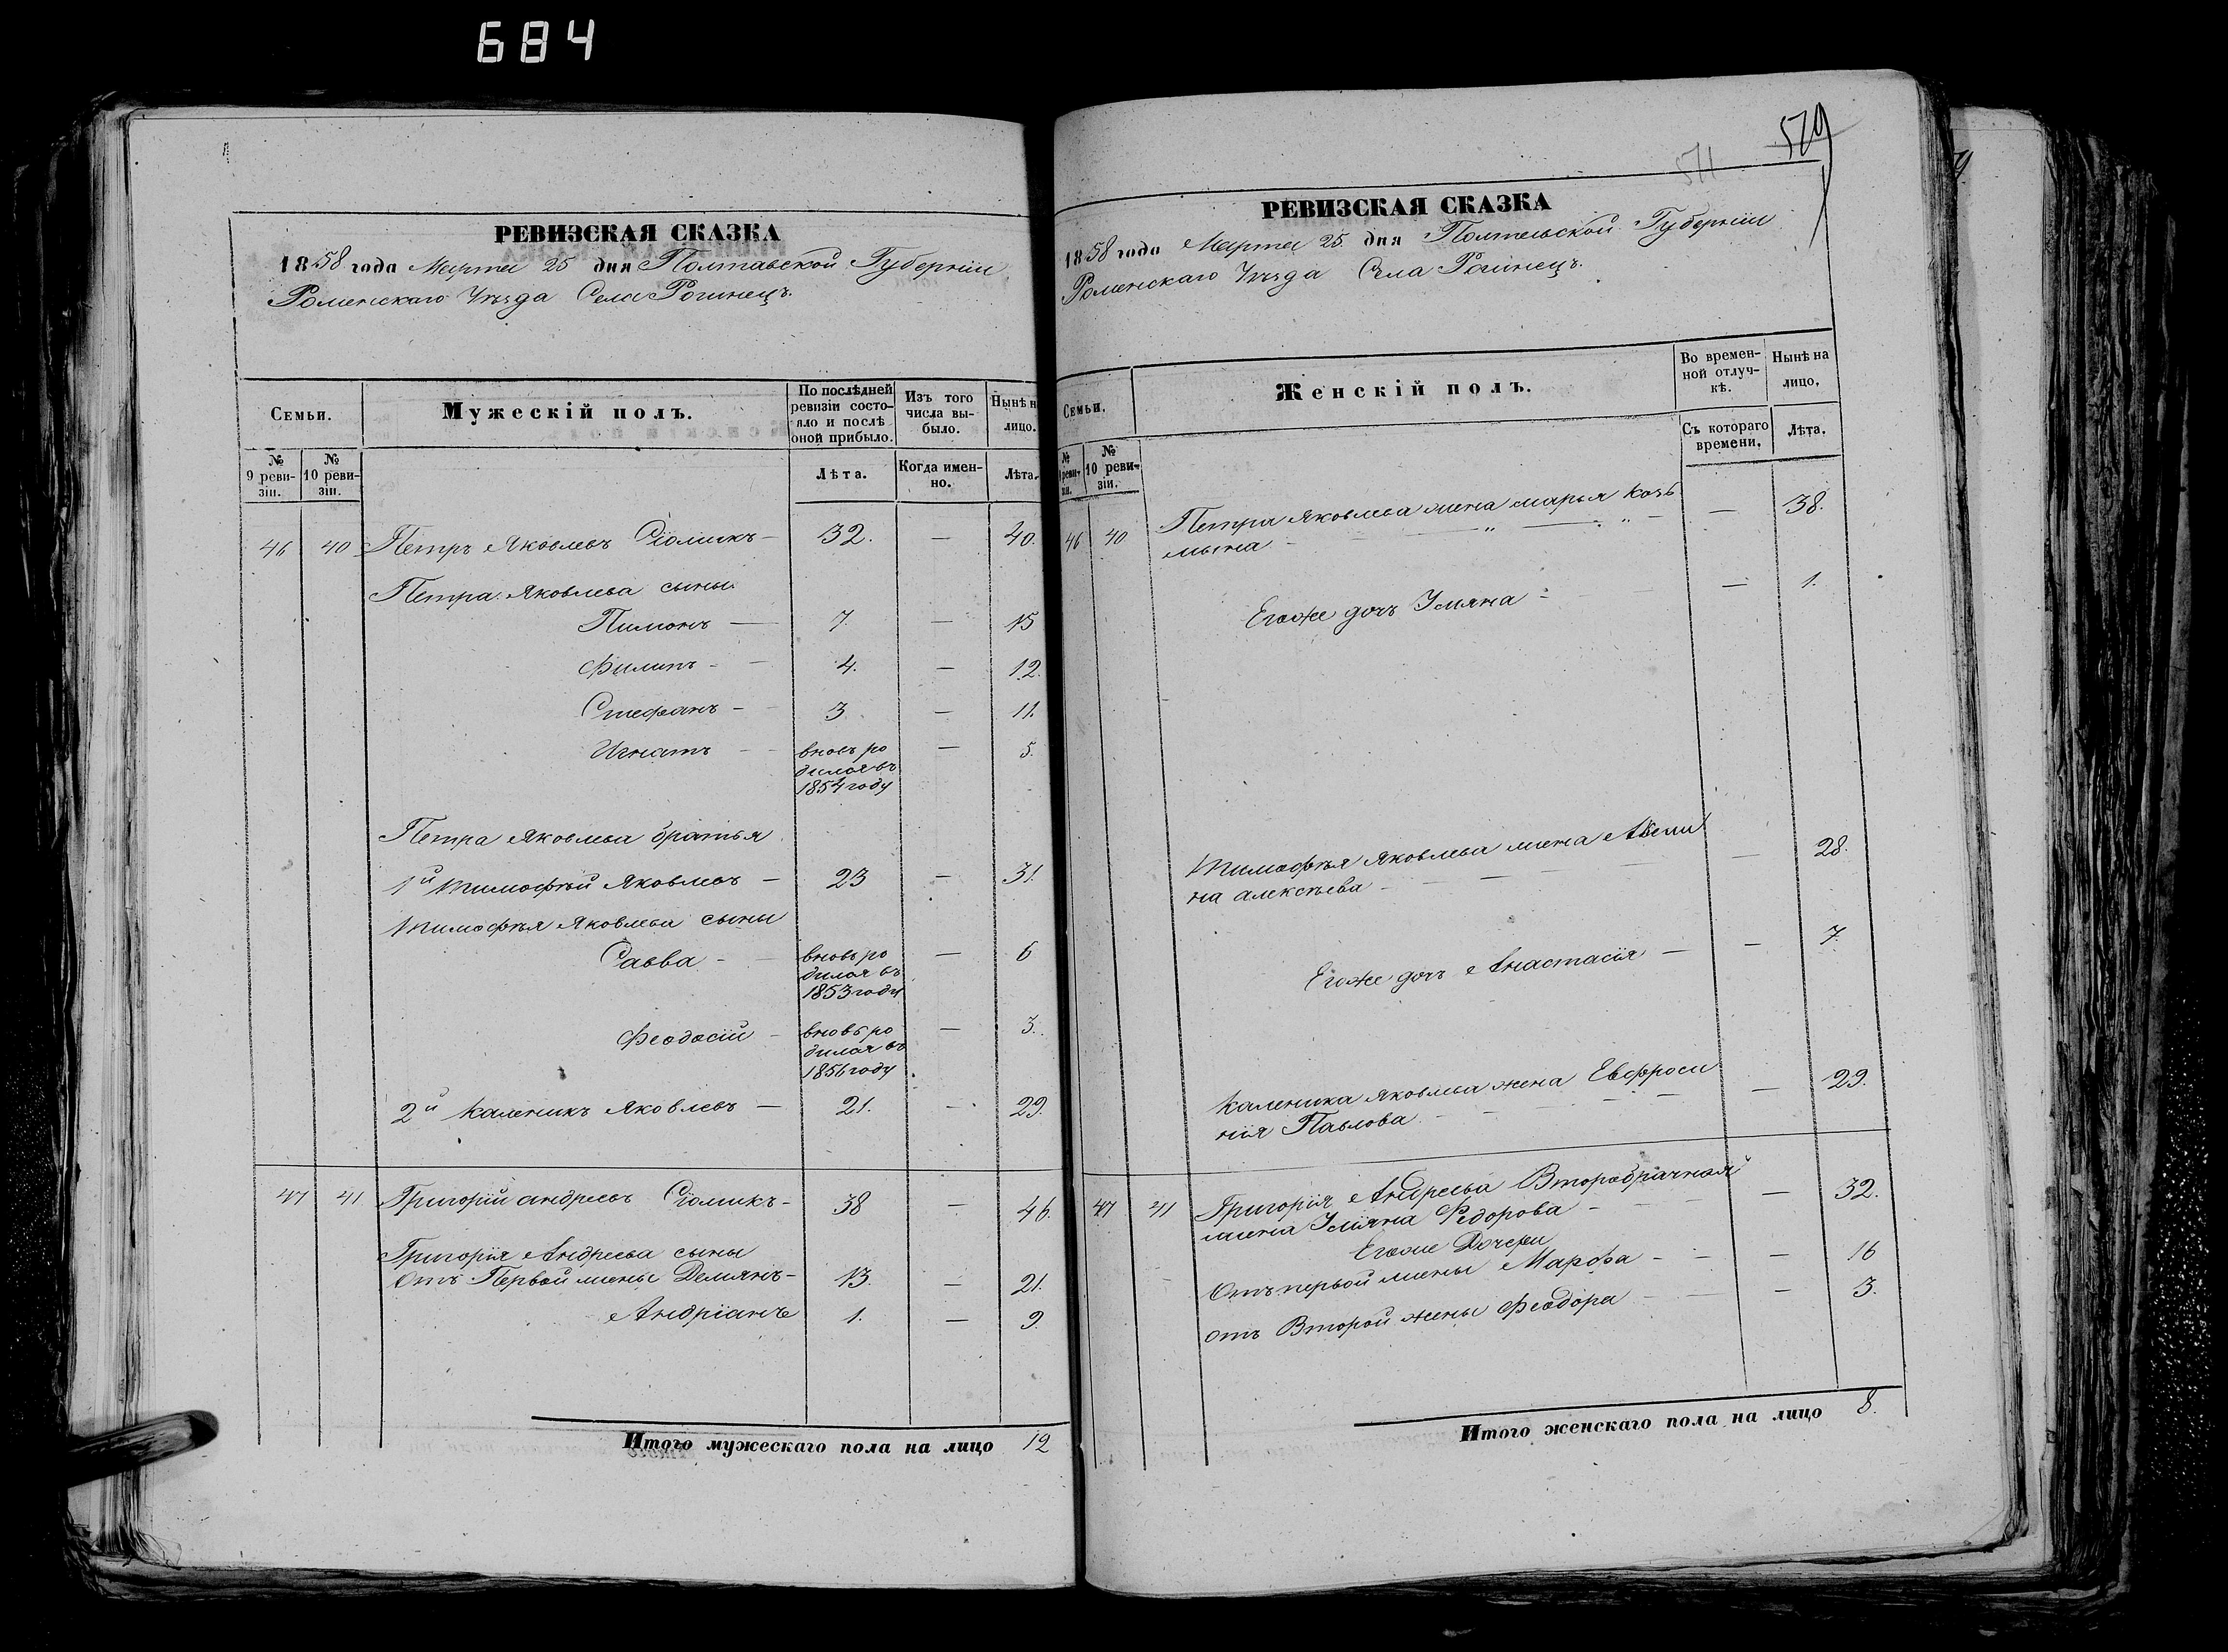 684
РЕВИЗСКАЯ СКАЗКА
1858 года Марта 25 дня Полтавской Губерніи
Роменскаго Уѣзда Села Рогинецъ.
Семьи.
Мужескій полъ.
По послѣдней ревизіи состояло и послѣ оной прибыло.
Изъ того числа выбыло.
Нынѣ н лицо.
№ 9 ревизіи.
№ 10 ревизіи.
Лѣта.
Когда именно.
Лѣта.
46 40 Петръ Яковлевъ 32. — 40.
Петра Яковлева сыны
Пимонъ — 7. — 15
Филипъ - 4. — 12.
Стефанъ - 3. — 11.
Игнатъ - вновь ро — 5.
дился въ
1854 году
Петра Яковлева братья
1й Тимофѣй Яковлевъ — 23 — 31.
Тимофѣя Яковлева сыны
Савва - вновь ро — 6
дился въ
1853 году
Феодосій - вновь ро — 3.
дился въ
1856 году
2й Каленикъ Яковлевъ — 21. — 29.
47 41 Григорій Андреевъ 38 — 46.
Григорія Андреева сыны
отъ Первой жены Демянъ - 13. — 21.
Андріанъ 1. — 9.
Итого мужескаго пола на лицо 12
579
571
РЕВИЗСКАЯ СКАЗКА
1858 года Марта 25 дня Полтавской Губерніи
Роменскаго Уѣзда Села Рогинецъ.
Семьи.
Женскій полъ.
Во временной отлучкѣ.
Нынѣ на лицо.
№ реви- зи.
№ 10 ревизіи.
Съ котораго времени.
Лѣта.
46 40 Петра Яковлева жена марья Козь — 38.
мына
Егоже дочь Уляна - — 1.
Тимофѣя Яковлева жена Акели — 28.
на алексѣева
Егоже дочь Анастасія — — 7.
Каленика Яковлева жена Евфроси — 29.
нія Павлова
47 41 Григорія Андреева Вторабрачная — 32.
жена Уліяна Федорова
Егоже Дочери
Отъ первой жены Марфа - — 16
отъ Второй жены Феодора — 3.
Итого женскаго пола на лицо 8.